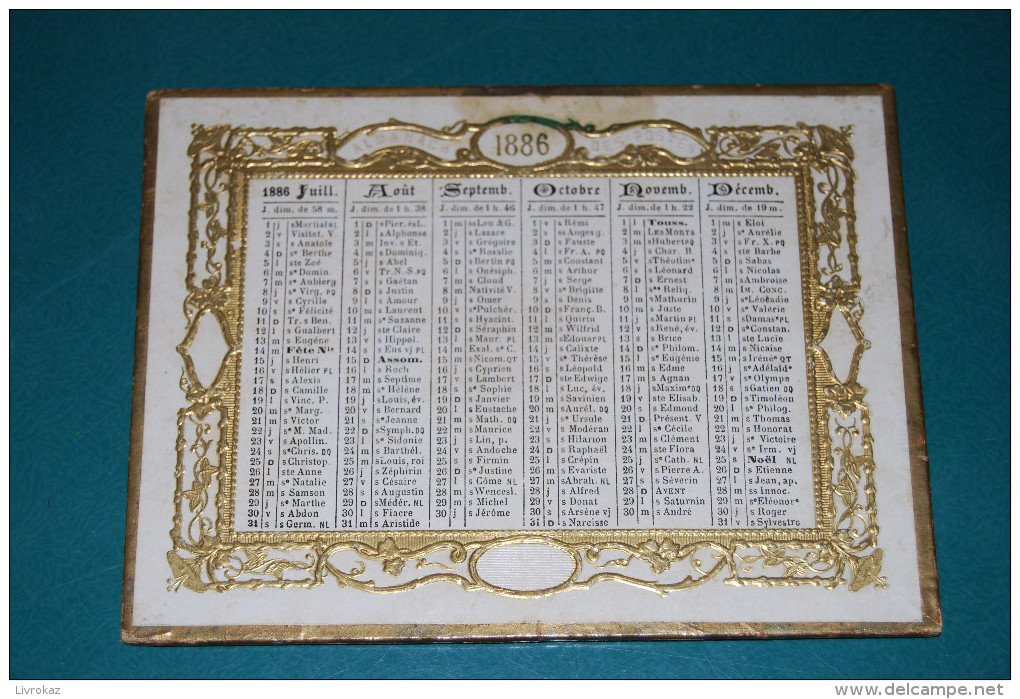 ALMANACH 1886 DES POSTES
1886 Juill.
J. dim. de 58 m.
1 j s Martial NL
2 v Visitat. V
3 s s Anatole
4 D sᵉ Berthe
5 l ste Zoé
6 m s Domin.
7 m sᵉ Aubierg
8 j sᵉ Virg. PQ
9 v s Cyrille
10 s sᵉ Félicité
11 D Tr. s Ben.
12 l s Gualbert
13 m s Eugène
14 m Fête Nˡᵉ
15 j s Henri
16 v s Hélier PL
17 s s Alexis
18 D s Camille
19 l s Vinc. P.
20 m sᵉ Marg.
21 m s Victor
22 j sᵉ M. Mad.
23 v s Apollin.
24 s sᵉ Chris. DQ
25 D s Christop.
26 l ste Anne
27 m sᵉ Natalie
28 m s Samson
29 j sᵉ Marthe
30 v s Abdon
31 s s Germ. NL
Août
J. dim. de 1 h. 38
1 D s Pier. ès L.
2 l s Alphonse
3 m Inv. s Et.
4 m s Dominiq.
5 j s Abel
6 v Tr. N.-S. PQ
7 s s Gaëtan
8 D s Justin
9 l s Amour
10 m s Laurent
11 m sᵉ Suzanne
12 j ste Claire
13 v s Hippol.
14 s s Eus vj PL
15 D Assom.
16 l s Roch
17 m s Septime
18 m sᵉ Hélène
19 j s Louis, év.
20 v s Bernard
21 s sᵉ Jeanne
22 D s Symph. DQ
23 l sᵉ Sidonie
24 m s Barthél.
25 m s Louis, roi
26 j s Zéphirin
27 v s Césaire
28 s s Augustin
29 D s Médér. NL
30 l s Fiacre
31 m s Aristide
Septemb.
J. dim. de 1 h. 46
1 m s Leu & G.
2 j s Lazare
3 v s Grégoire
4 s sᵉ Rosalie
5 D s Bertin PQ
6 l s Onésiph.
7 m s Cloud
8 m Nativité V.
9 j s Omer
10 v sᵉ Pulchér.
11 s s Hyacint.
12 D s Séraphin
13 l s Maur. PL
14 m Exal. sᵉ C.
15 m s Nicom. QT
16 j s Cyprien
17 v s Lambert
18 s sᵉ Sophie
19 D s Janvier
20 l s Eustache
21 m s Math. DQ
22 m s Maurice
23 j s Lin, p.
24 v s Andoche
25 s s Firmin
26 D sᵉ Justine
27 l s Côme NL
28 m s Wencesl.
29 m s Michel
30 j s Jérôme
Octobre
J. dim. de 1 h. 47
1 v s Rémi
2 s ss Anges g.
3 D s Fauste
4 l s Fr. A. PQ
5 m s Constant
6 m s Arthur
7 j s Serge
8 v sᵉ Brigitte
9 s s Denis
10 D s Franç. B.
11 l s Quirin
12 m s Wilfrid
13 m s Edouar PL
14 j s Calixte
15 v sᵉ Thérèse
16 s s Léopold
17 D ste Edwige
18 l s Luc, év.
19 m s Savinien
20 m s Aurél. DQ
21 j sᵉ Ursule
22 v s Modéran
23 s s Hilarion
24 D s Raphaël
25 l s Crépin
26 m s Evariste
27 m s Abrah. NL
28 j s Alfred
29 v s Donat
30 s s Arsène vj
31 D s Narcisse
Novemb.
J. dim. de 1 h. 22
1 l Touss.
2 m LES MORTS
3 m s Hubert PQ
4 j s Char. B.
5 v s Théotimᵉ
6 s s Léonard
7 D s Ernest
8 l sᵉˢ Reliq.
9 m s Mathurin
10 m s Juste
11 j s Martin PL
12 v s René, év.
13 s s Brice
14 D sᵉ Philom.
15 l sᵉ Eugénie
16 m s Edme
17 m s Agnan
18 j s Maxim. DQ
19 v ste Elisab.
20 s s Edmond
21 D Présent. V
22 l sᵉ Cécile
23 m s Clément
24 m ste Flora
25 j sᵉ Cath. NL
26 v s Pierre A.
27 s s Séverin
28 D AVENT
29 l s Saturnin
30 m s André
Décemb.
J. dim. de 19 m.
1 m s Eloi
2 j sᵉ Aurélie
3 v s Fr. X. PQ
4 s ste Barbe
5 D s Sabas
6 l s Nicolas
7 m s Ambroise
8 m IM. CONC.
9 j s Léocadie
10 v sᵉ Valère
11 s s Damas PL
12 D sᵉ Constan.
13 l ste Lucie
14 m s Nicaise
15 m s Iréné QT
16 j sᵉ Adélaïdᵉ
17 v sᵉ Olympe
18 s s Gatien DQ
19 D s Timoléon
20 l sᵉ Philog.
21 m s Thomas
22 m s Honorat
23 j sᵉ Victoire
24 v sᵉ Irm. vj
25 s Noël NL
26 D s Etienne
27 l s Jean, ap.
28 m ss Innoc.
29 m sᵉ Eléonorᵉ
30 j s Roger
31 v s Sylvestre
Livrokaz
www.delcampe.net